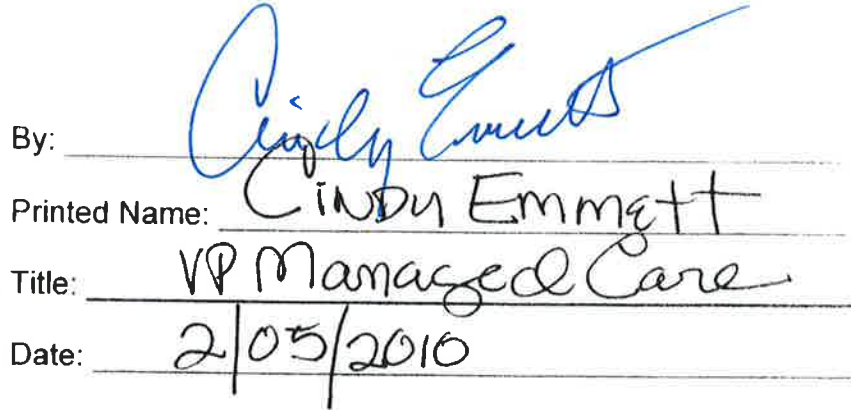 By: Cindy Emmett
Printed Name: Cindy Emmett
Title: VP Managed Care
Date: 2/05/2010